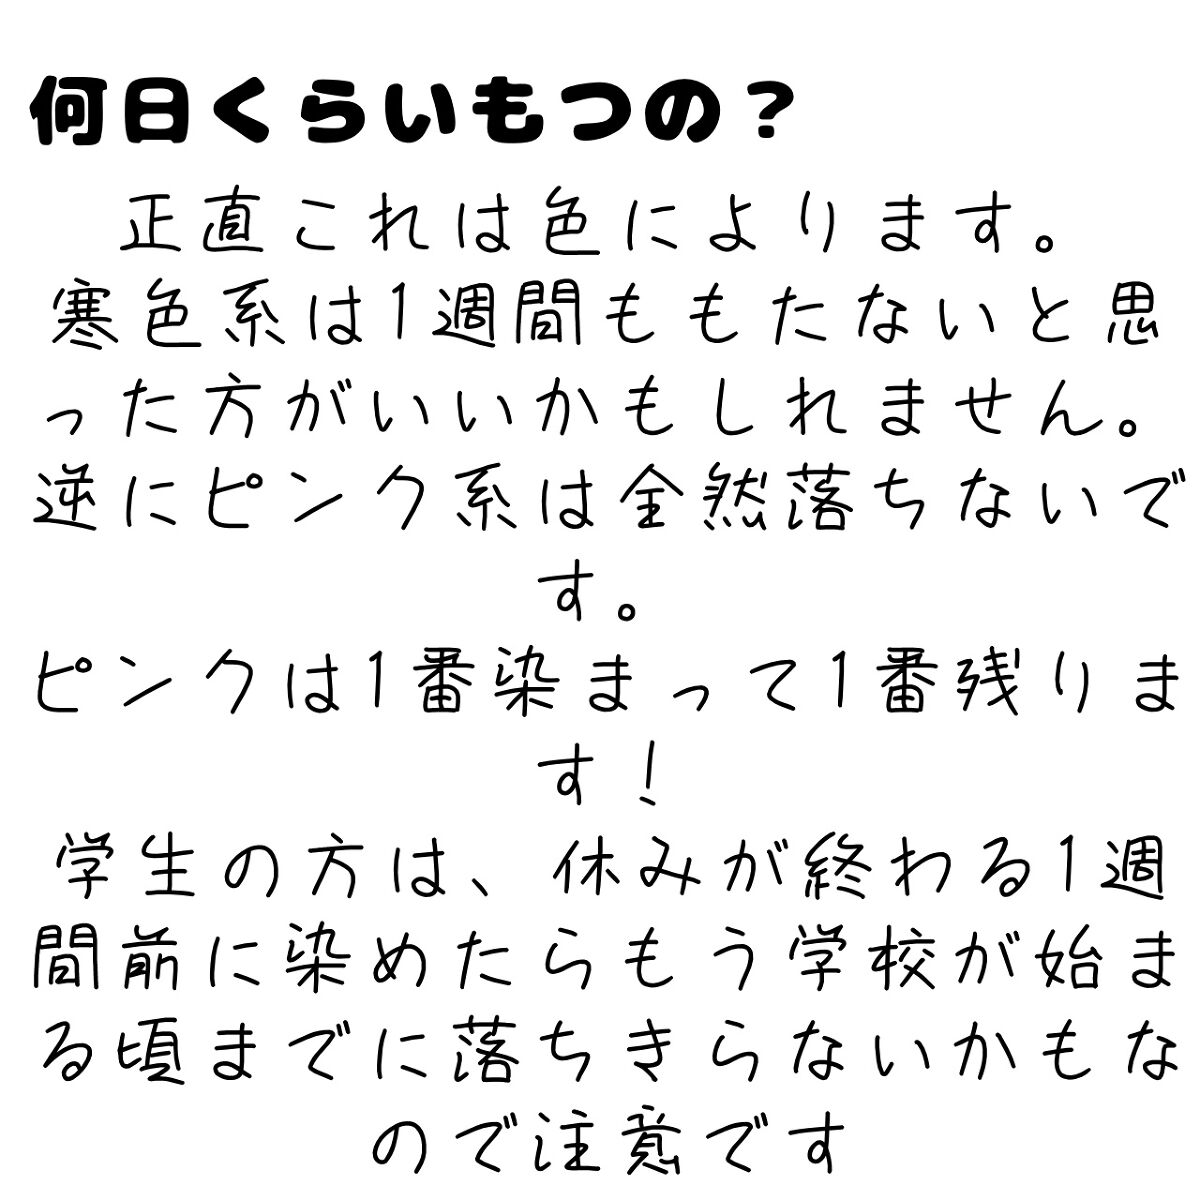 何日くらいもつの？
正直これは色によります。
寒色系は1週間ももたないと思
った方がいいかもしれません。
逆にピンク系は全然落ちないで
す。
ピンクは1番染まって1番残りま
す！
学生の方は、休みが終わる1週
間前に染めたらもう学校が始ま
る頃までに落ちきらないかもな
ので注意です